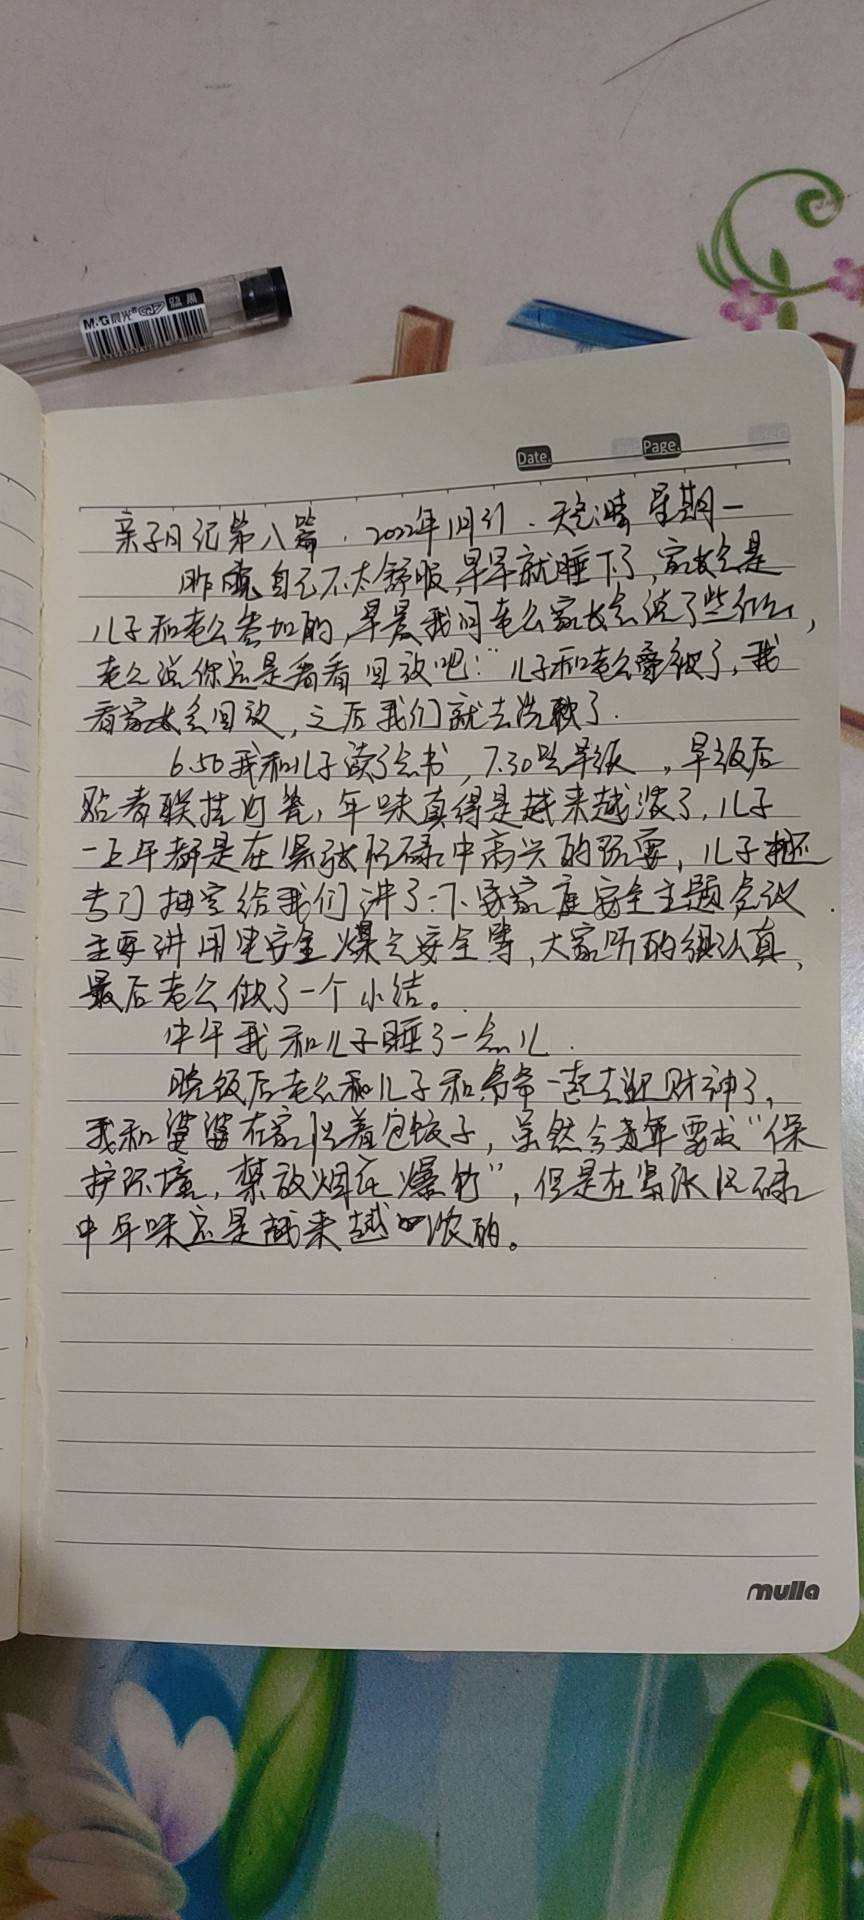 M&G 晨光
Date.
Page.
亲子日记第八篇. 2022年1月31. 天气:晴 星期一
昨晚自己不太舒服,早早就睡下了,家长会是
儿子和老公参加的,早晨我问老公家长会说了些什么,
老公说你还是看看回放吧!"儿子和老公睡了,我
看家长会回放,之后我们就去洗漱了.
6.50我和儿子读了会书,7.30吃早饭,早饭后
贴春联挂灯笼,年味真得是越来越浓了,儿子
一上午都是在紧张忙碌中高兴的玩耍,儿子还
专门抽空给我们讲了一下家庭安全主题会议.
主要讲用电安全 煤气安全等,大家听的很认真,
最后老公做了一个小结。
中午我和儿子睡了一会儿.
晚饭后老公和儿子和爷爷一起去迎财神了,
我和婆婆在家忙着包饺子,虽然今年要求"保
护环境,禁放烟花爆竹",但是在紧张忙碌
中年味还是越来越浓的。
mulla